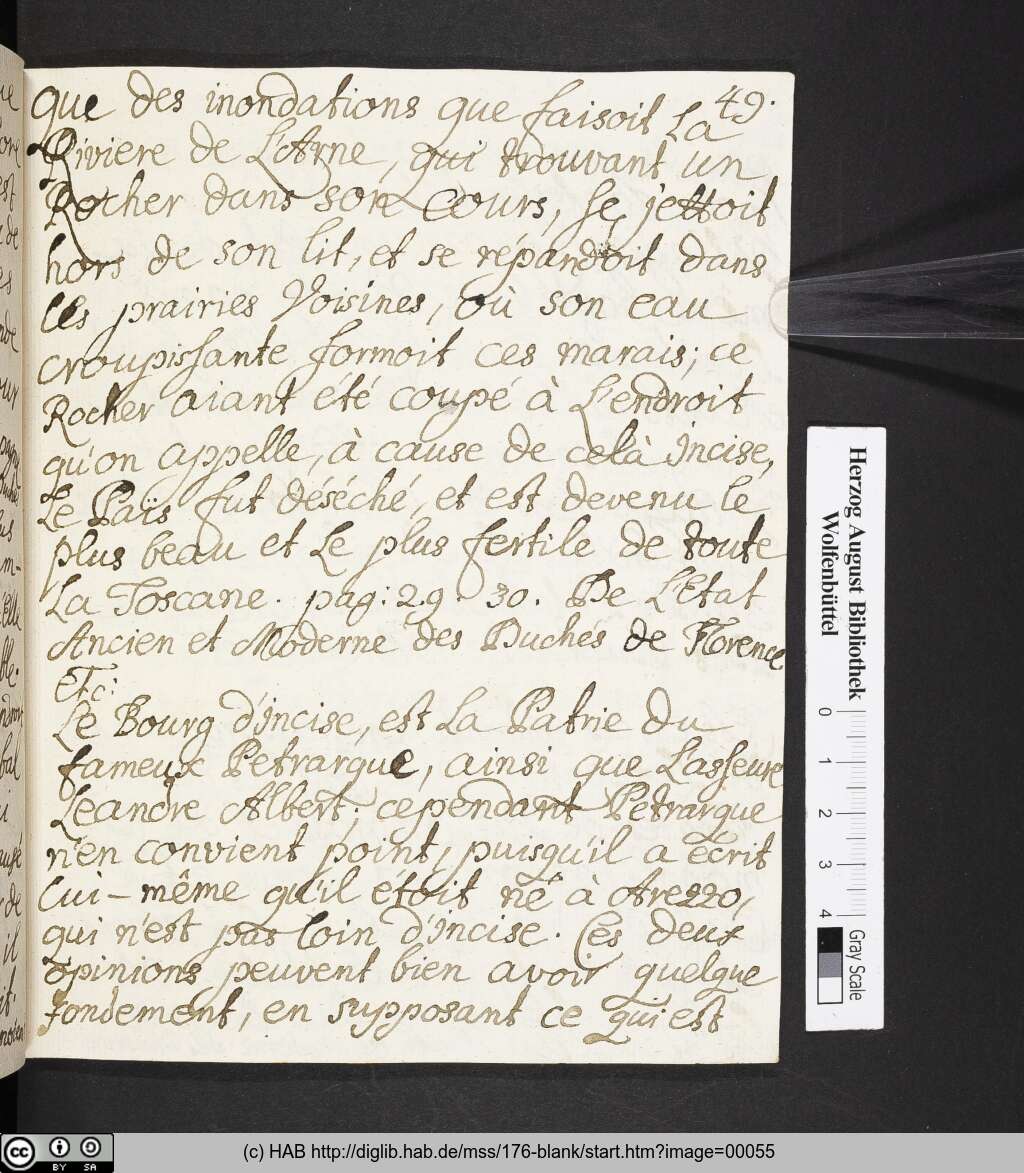 49.
que des inondations que faisoit La
Riviere de L'Arne, qui trouvant un
Rocher dans son Cours, se jettoit
hors de son lit, et se répandoit dans
les prairies Voisines, où son eau
croupissante formoit ces marais; ce
Rocher aiant été coupé à L'endroit
qu'on appelle, à cause de celà Incise,
Le Païs fut déséché, et est devenu le
plus beau et Le plus fertile de toute
La Toscane. pag: 29. 30. De L'Etat
Ancien et Moderne des Duchés de Florence
Etc:
Le Bourg d'Incise, est La Patrie du
fameux Petrarque, ainsi que L'asseure
Leandre Albert; cependant Petrarque
n'en convient point, puisqu'il a écrit
lui-même qu'il étoit né à Arezzo,
qui n'est pas loin d'Incise. Ces deux
opinions peuvent bien avoir quelque
fondement, en supposant ce qui est
Herzog August Bibliothek
Wolfenbüttel
0 1 2 3 4
Gray Scale
(c) HAB http://diglib.hab.de/mss/176-blank/start.htm?image=00055
cc BY SA